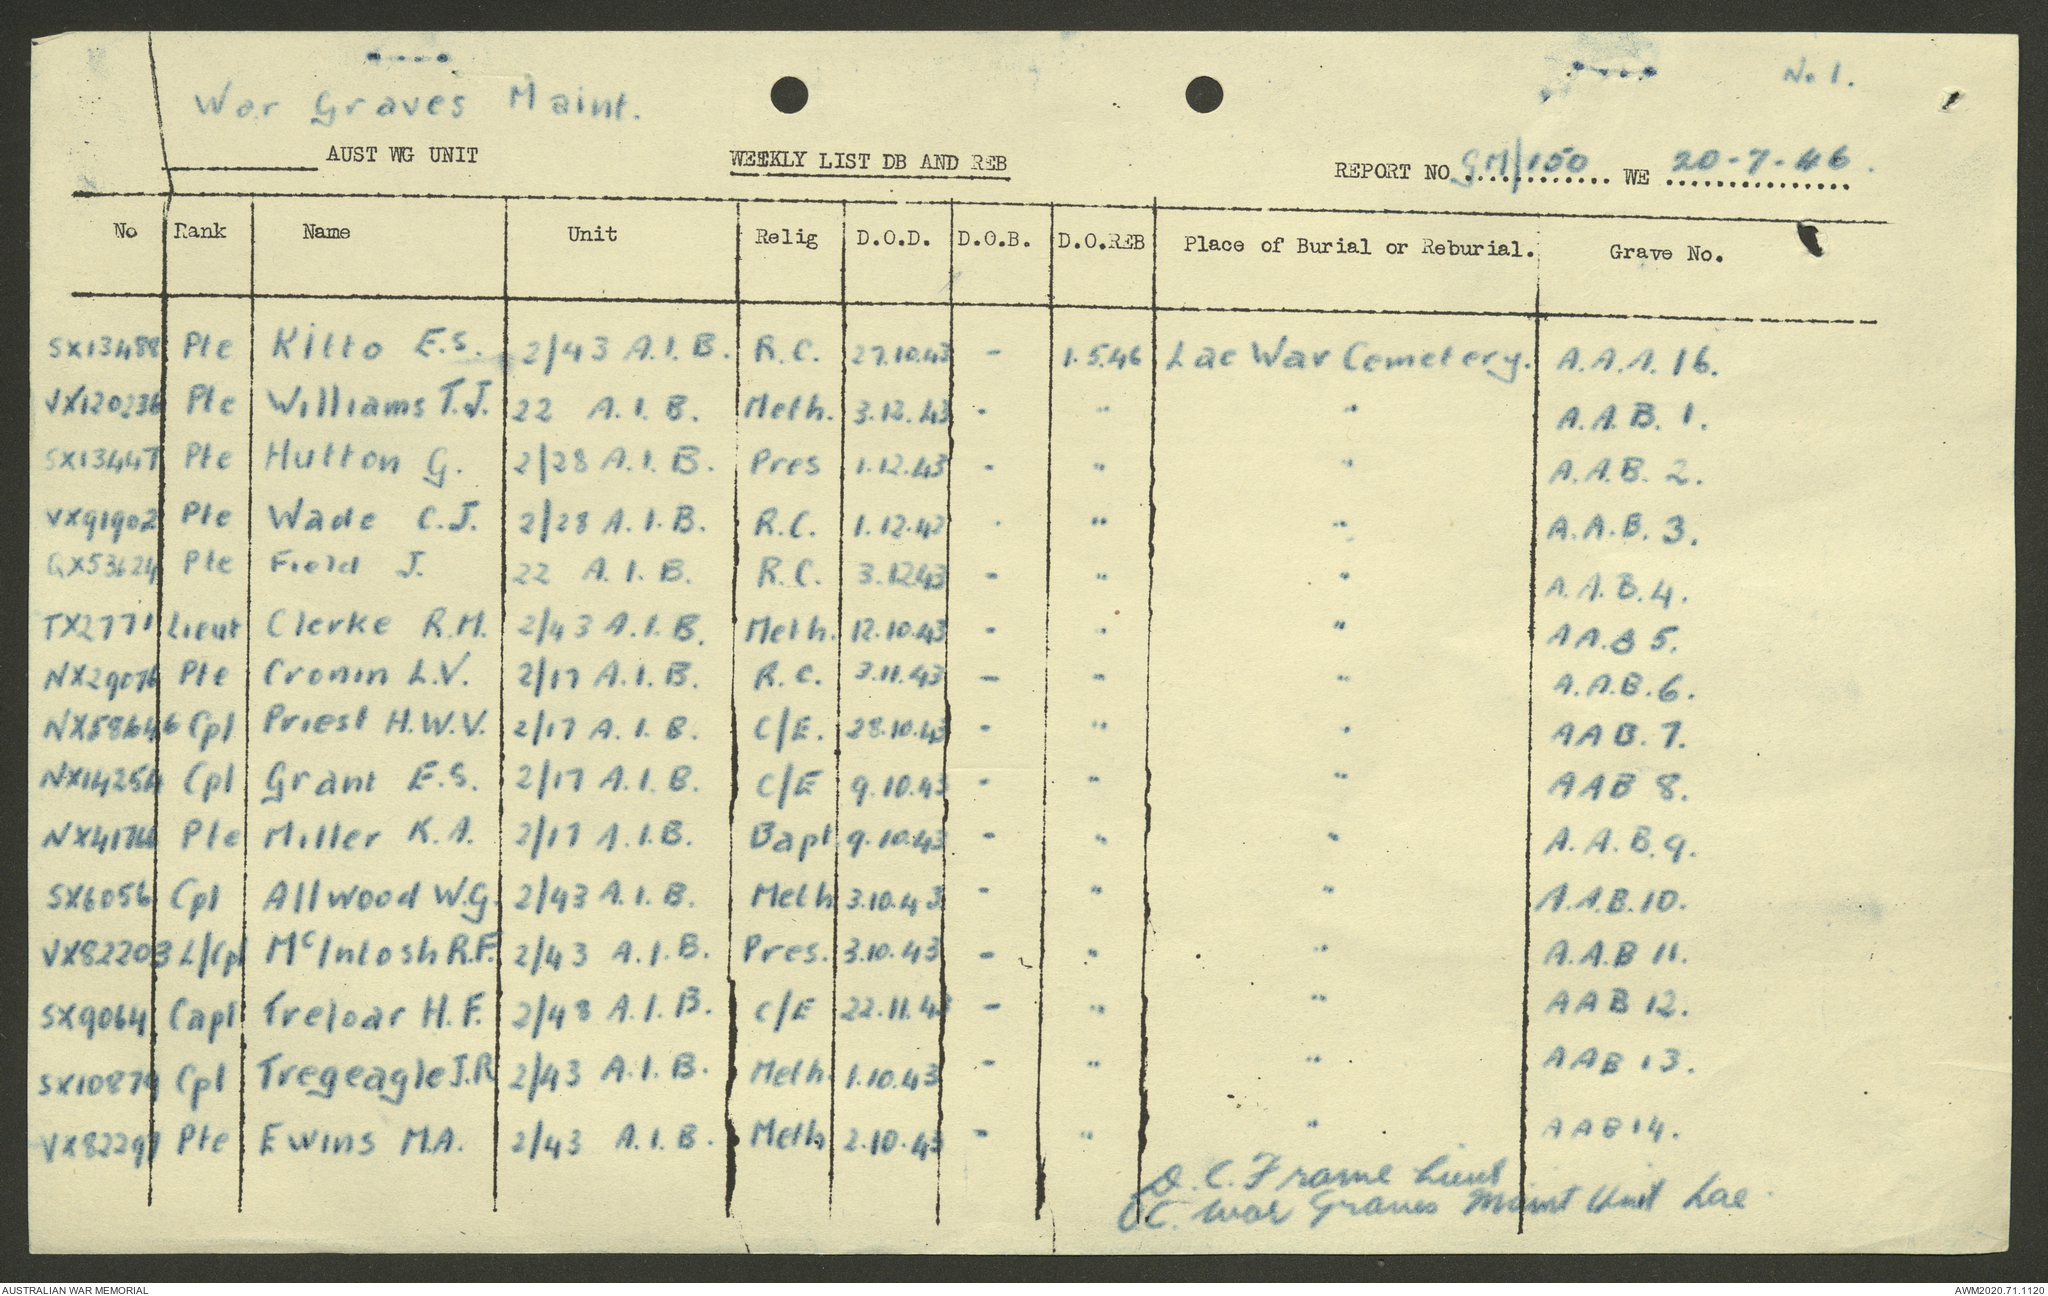 No 1.
War Graves Maint.
AUST WG UNIT WEEKLY LIST DB AND REB REPORT NO GM/150 WE 20-7-46.
No Rank Name Unit Relig D.O.D. D.O.B. D.O.REB Place of Burial or Reburial. Grave No.
SX13488 Pte Kilto E.S. 2/43 A.I.B. R.C. 27.10.43 - 1.5.46 Lae War Cemetery. A.A.A. 16.
VX120236 Pte Williams T.J. 22 A.I.B. Meth. 3.12.43 - " " A.A.B. 1.
SX13447 Pte Hutton G. 2/28 A.I.B. Pres 1.12.43 - " " A.A.B. 2.
VX91902 Pte Wade C.J. 2/28 A.I.B. R.C. 1.12.43 . " " A.A.B. 3.
QX53624 Pte Field J. 22 A.I.B. R.C. 3.12.43 - " " A.A.B. 4.
TX2771 Lieut Clerke R.M. 2/43 A.I.B. Meth. 12.10.43 - " " A A.B 5.
NX29076 Pte Cronin L.V. 2/17 A.I.B. R.C. 3.11.43 - " " A.A.B. 6.
NX58646 Cpl Priest H.W.V. 2/17 A.I.B. C/E. 28.10.43 - " " A A B. 7.
NX14254 Cpl Grant E.S. 2/17 A.I.B. C/E 9.10.43 - " " A A B 8.
Pte Miller K.A. 2/17 A.I.B. Bapt. 9.10.43 - " " A.A.B. 9.
SX6056 Cpl Allwood W.G. 2/43 A.I.B. Meth 3.10.43 - " " A.A.B. 10.
VX82203 L/Cpl McIntosh R.F. 2/43 A.I.B. Pres. 3.10.43 - " " A.A.B 11.
SX9064 Capt Treloar H.F. 2/48 A.I.B. C/E 22.11.43 - " " A A B 12.
SX10879 Cpl Tregeagle J.R 2/43 A.I.B. Meth. 1.10.43 - " " A A B 13.
VX82297 Pte Ewins M.A. 2/43 A.I.B. Meth 2.10.43 - " " A A B 14.
D. C. Frame Lieut
OC. War Graves Maint Unit Lae.
AUSTRALIAN WAR MEMORIAL AWM2020.71.1120